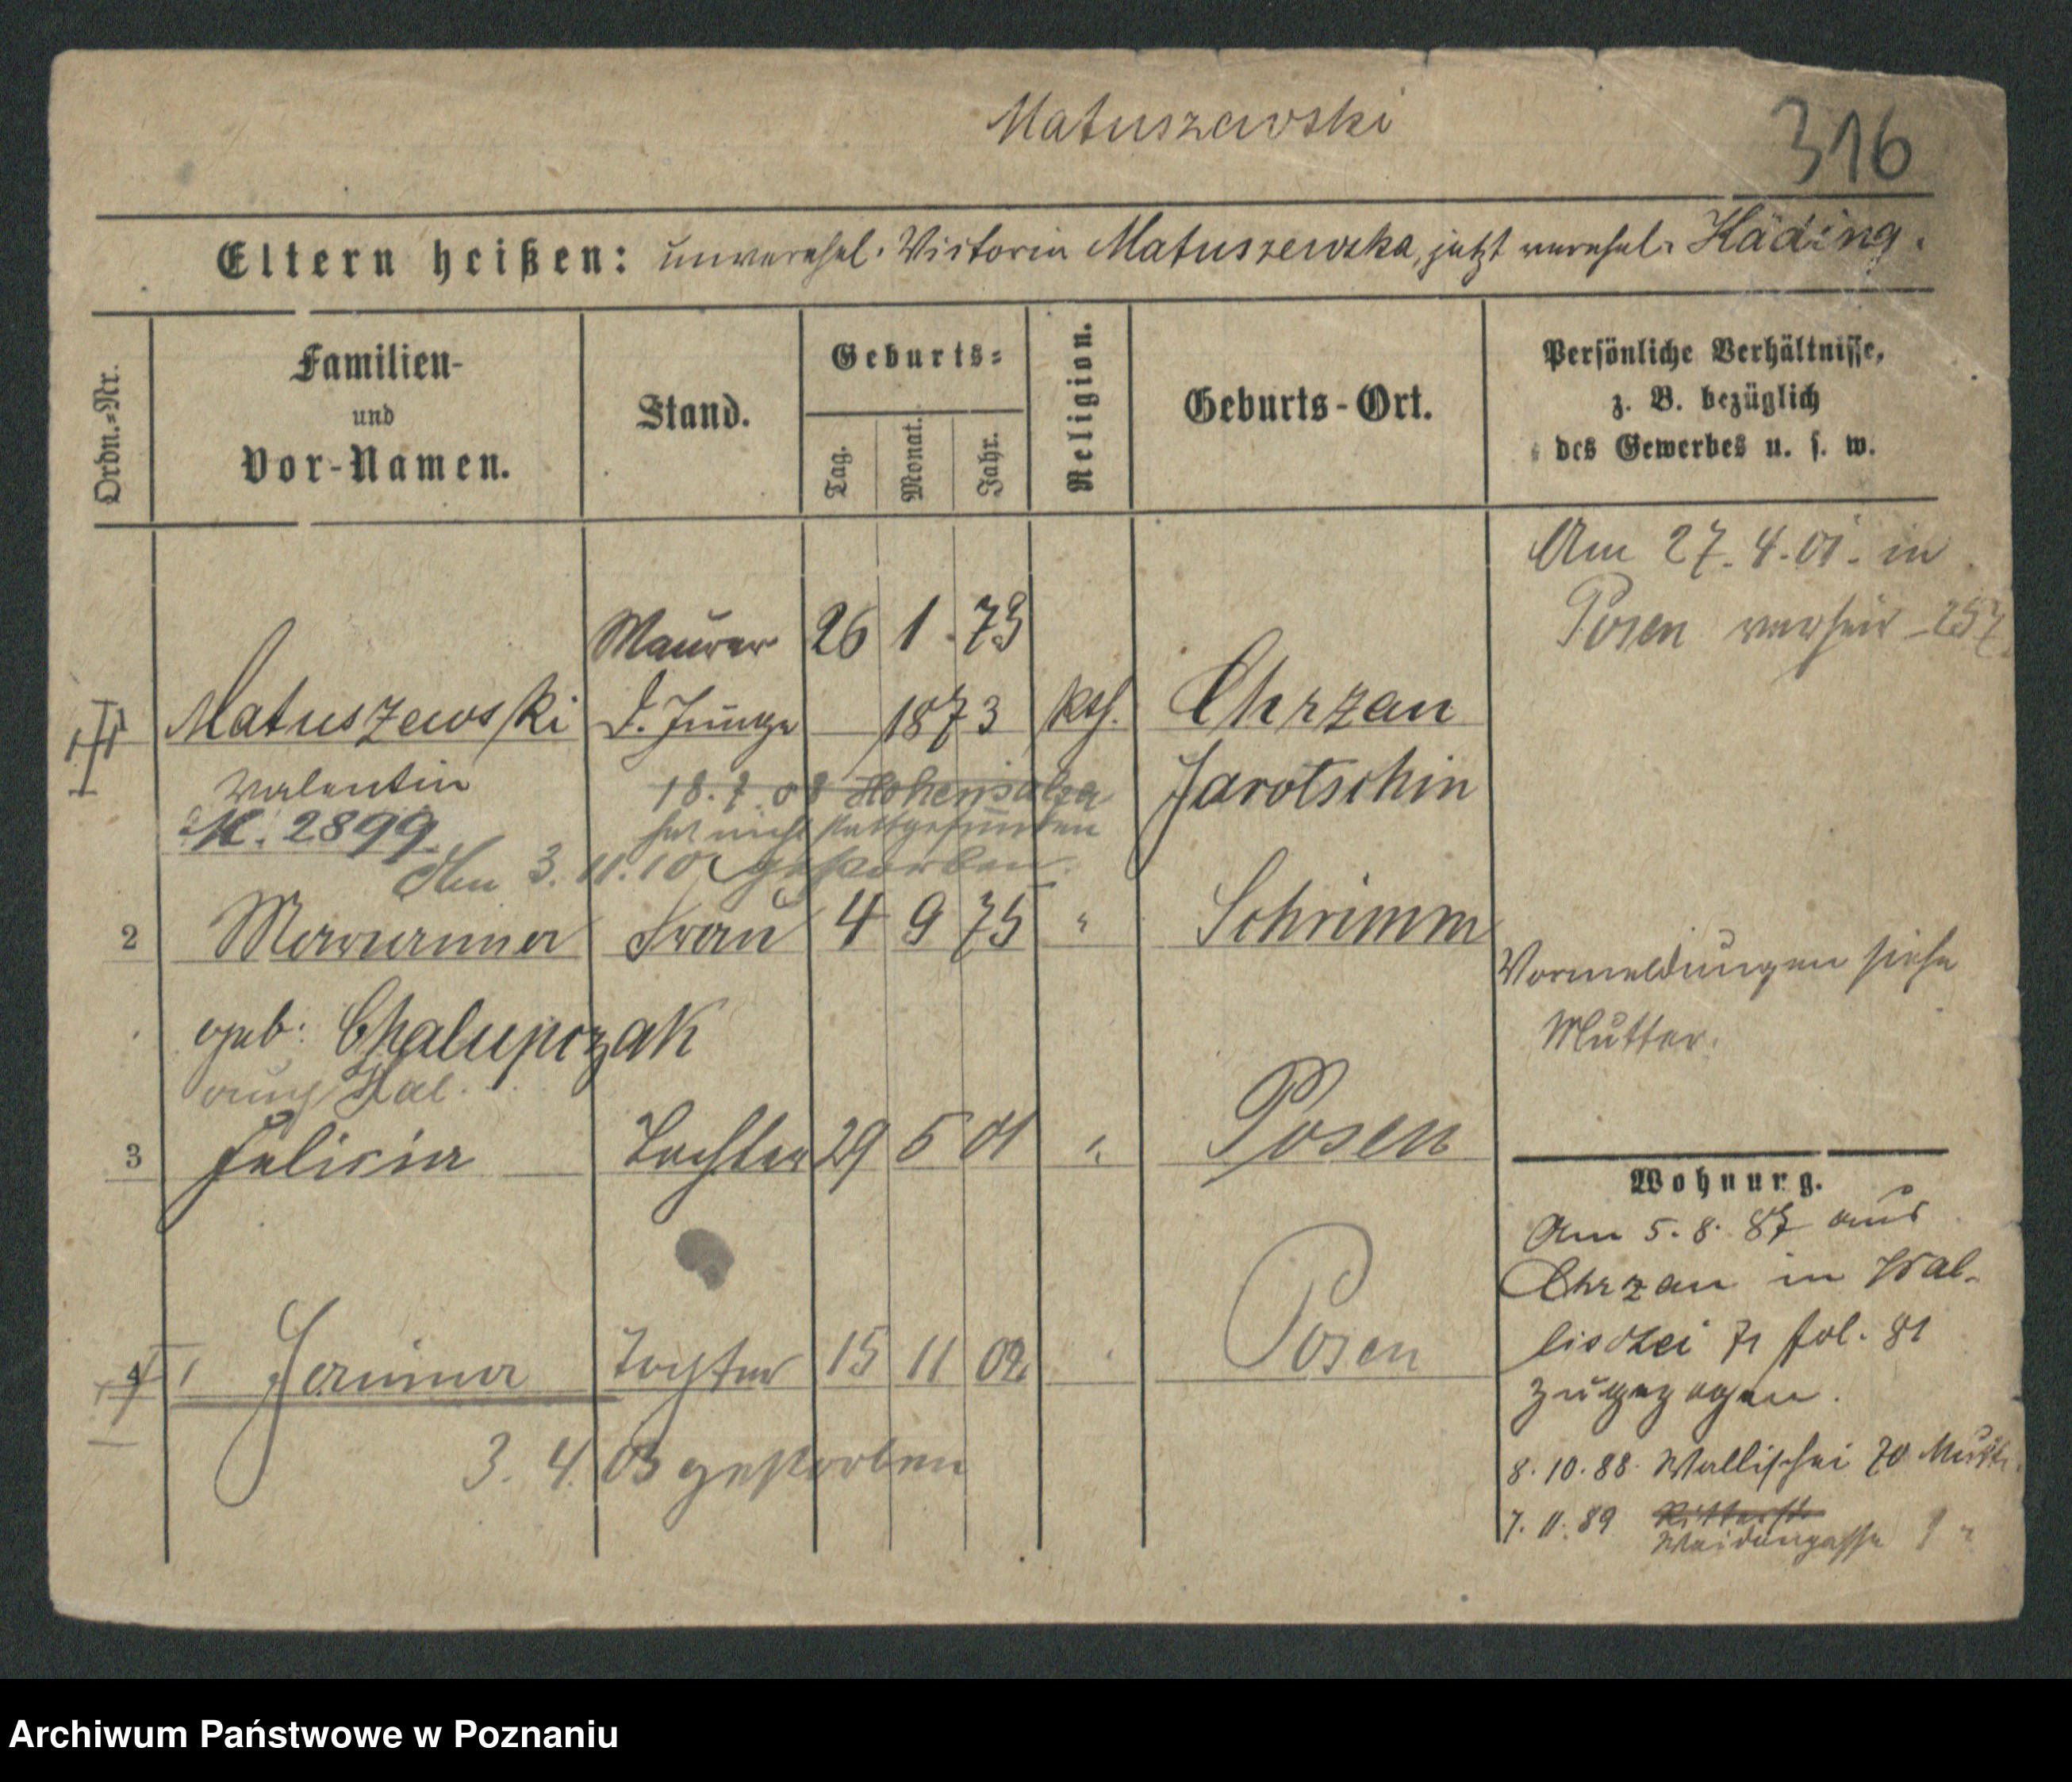 Matuszewski
316
Eltern heißen: unverehel. Victoria Matuszewska, jetzt verehel. Häding.
Ordn.=Nr.
Familien-
und
Vor-Namen.
Stand.
Geburts=
Tag.
Monat.
Jahr.
Religion.
Geburts-Ort.
Persönliche Verhältnisse,
z. B. bezüglich
des Gewerbes u. s. w.
Am 27.4.01. in
Posen verheir
Maurer 26 1. 73
Matuszewski d. Junge 1873 kth. Chrzan
Valentin Jarotschin
18.7.08 Hohensalza
hat nicht stattgefunden
M. 2899
Am 3.11.10 gestorben.
2 Marianna Frau 4 9 75 " Schrimm
Vormeldungen siehe
Mutter.
geb. Chalupczak
auch Kal.
3 Felicia Tochter 29 5 01 " Posen
Wohnung.
Am 5.8.87 aus
Chrzan in Wal-
lischei 71 fol. 81
zugezogen.
4 Janina Tochter 15 11 02 Posen
3.4.03 gestorben
8.10.88. Wallischei 70
7.11.89 Ritterstr
Weidengasse
Archiwum Państwowe w Poznaniu